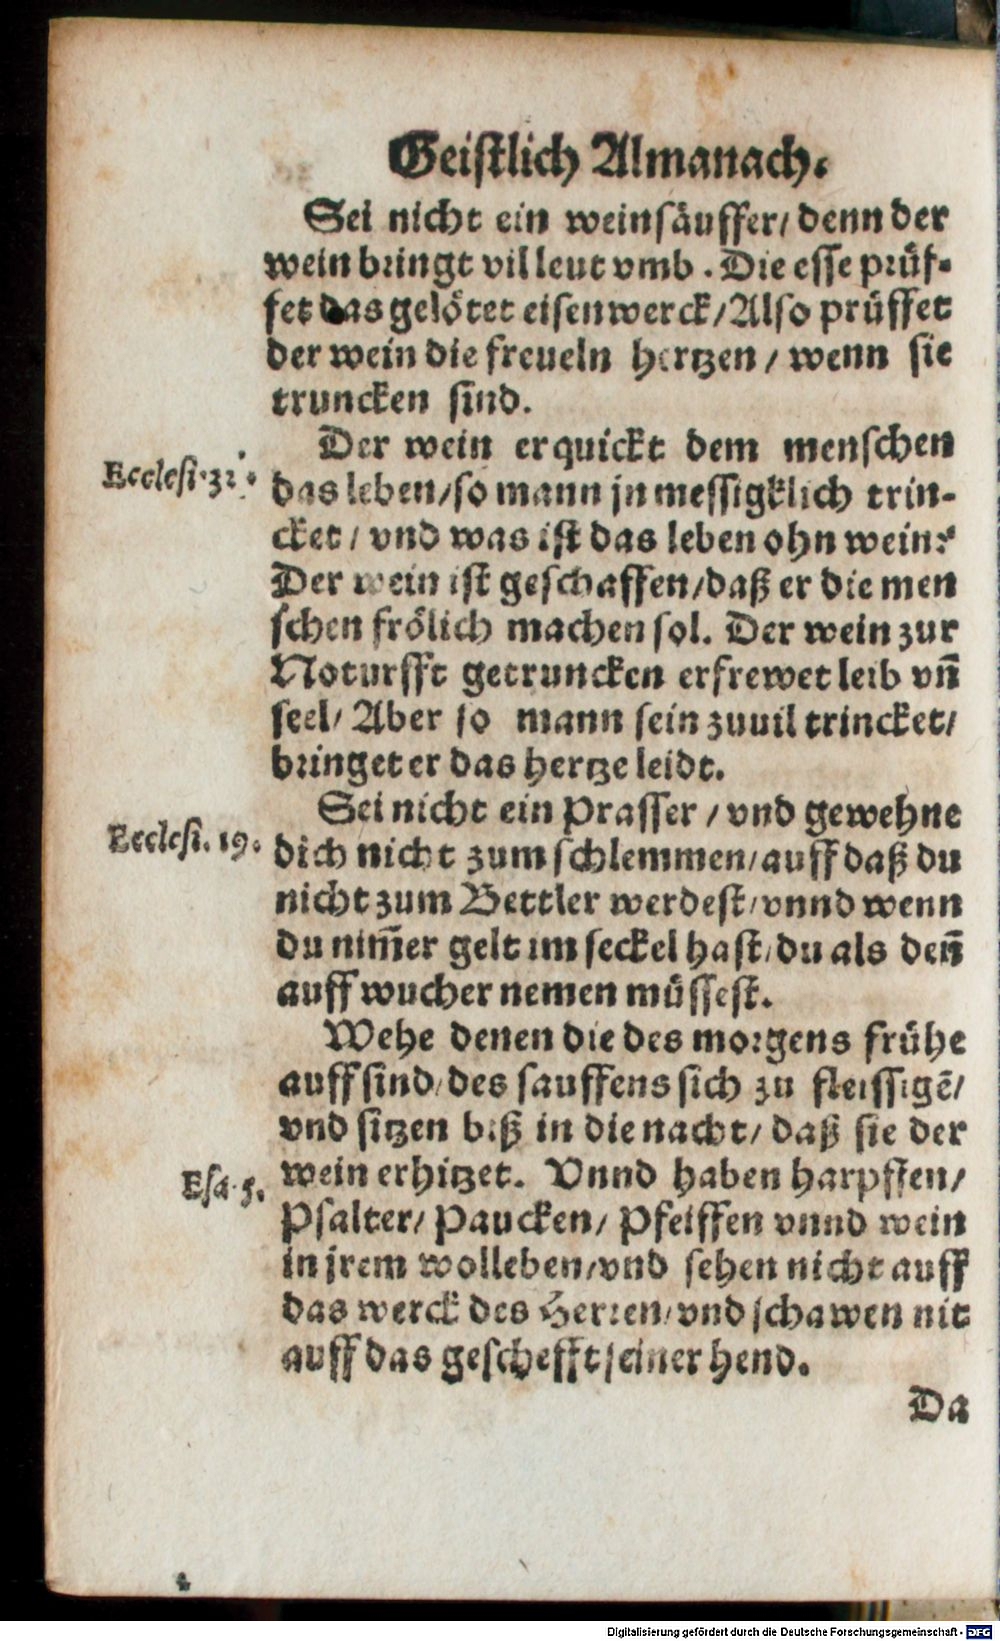 Geistlich Almanach.
Sei nicht ein weinsäuffer/ denn der
wein bringt vil leut vmb. Die esse prüf-
fet das gelötet eisenwerck/ Also prüffet
der wein die freueln hertzen/ wenn sie
truncken sind.
Der wein erquickt dem menschen
Ecclesi. 31.
das leben/ so mann jn messigklich trin-
cket/ vnd was ist das leben ohn wein?
Der wein ist geschaffen/ daß er die men
schen frölich machen sol. Der wein zur
Noturfft getruncken erfrewet leib vñ
seel/ Aber so mann sein zuuil trincket/
bringet er das hertze leidt.
Sei nicht ein Prasser/ vnd gewehne
Ecclesi. 19.
dich nicht zum schlemmen/ auff daß du
nicht zum Bettler werdest/ vnnd wenn
du nim̃er gelt im seckel hast/ du als deñ
auff wucher nemen müssest.
Wehe denen die des morgens frühe
auff sind/ des sauffens sich zu fleissigẽ/
vnd sitzen biß in die nacht/ daß sie der
Esa. 5.
wein erhitzet. Vnnd haben harpffen/
Psalter/ Paucken/ Pfeiffen vnnd wein
in jrem wolleben/ vnd sehen nicht auff
das werck des Herren/ vnd schawen nit
auff das geschefft seiner hend.
Da
Digitalisierung gefördert durch die Deutsche Forschungsgemeinschaft - DFG